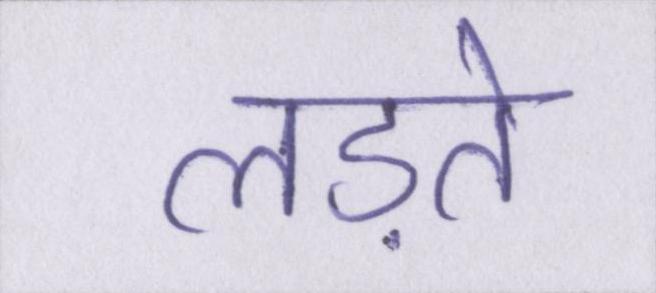 लड़ते